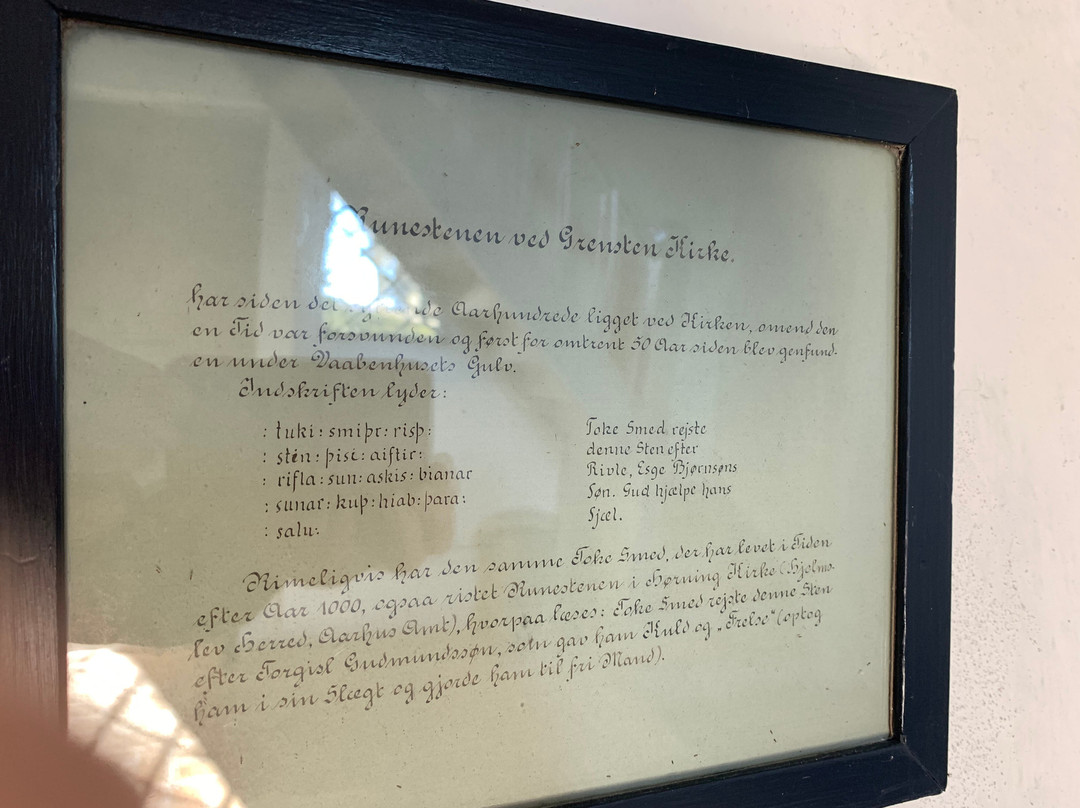 Runestenen ved Grensten Kirke.
har siden det nde Aarhundrede ligget ved Kirken, omend den
en Tid var forsvunden og først for omtrent 50 Aar siden blev genfund-
en under Vaabenhusets Gulv.
Indskriften lyder:
: tuki : smiþr : risþ :
: stén : þisi : aiftir :
: rifla : sun : askis : bianar
: sunar : kuþ : hiab : þara :
: salu :
Toke Smed rejste
denne Sten efter
Rivle, Esge Bjørnsøns
Søn. Gud hjælpe hans
Sjæl.
Rimeligvis har den samme Toke Smed, der har levet i Tiden
efter Aar 1000, ogsaa ristet Runestenen i Hørning Kirke (Hjelms-
lev Herred, Aarhus Amt), hvorpaa læses: Toke Smed rejste denne Sten
efter Torgisl Gudmundssøn, som gav ham Kuld og „Frelse" (optog
ham i sin Slægt og gjorde ham til fri Mand).